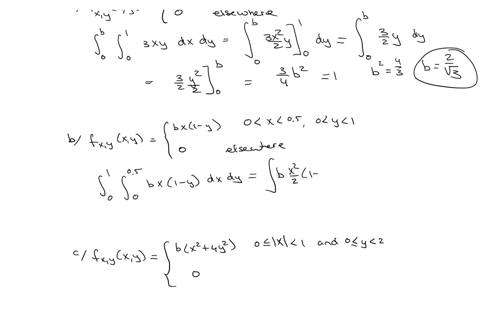 f_{x,y} { 0 elsewhere
∫_0^b ∫_0^1 3xy dx dy = ∫_0^b 3x²/2 y ]_0^1 dy = ∫_0^b 3/2 y dy
= 3/2 y²/2 ]_0^b = 3/4 b² = 1 b² = 4/3 b = 2/√3
b/ f_{x,y}(x,y) = { bx(1-y) 0<x<0,5, 0<y<1
0 elsewhere
∫_0^1 ∫_0^{0.5} bx(1-y) dx dy = ∫ b x²/2 (1-
c/ f_{x,y}(x,y) = { b(x²+4y²) 0≤|x|<1 and 0≤y<2
0